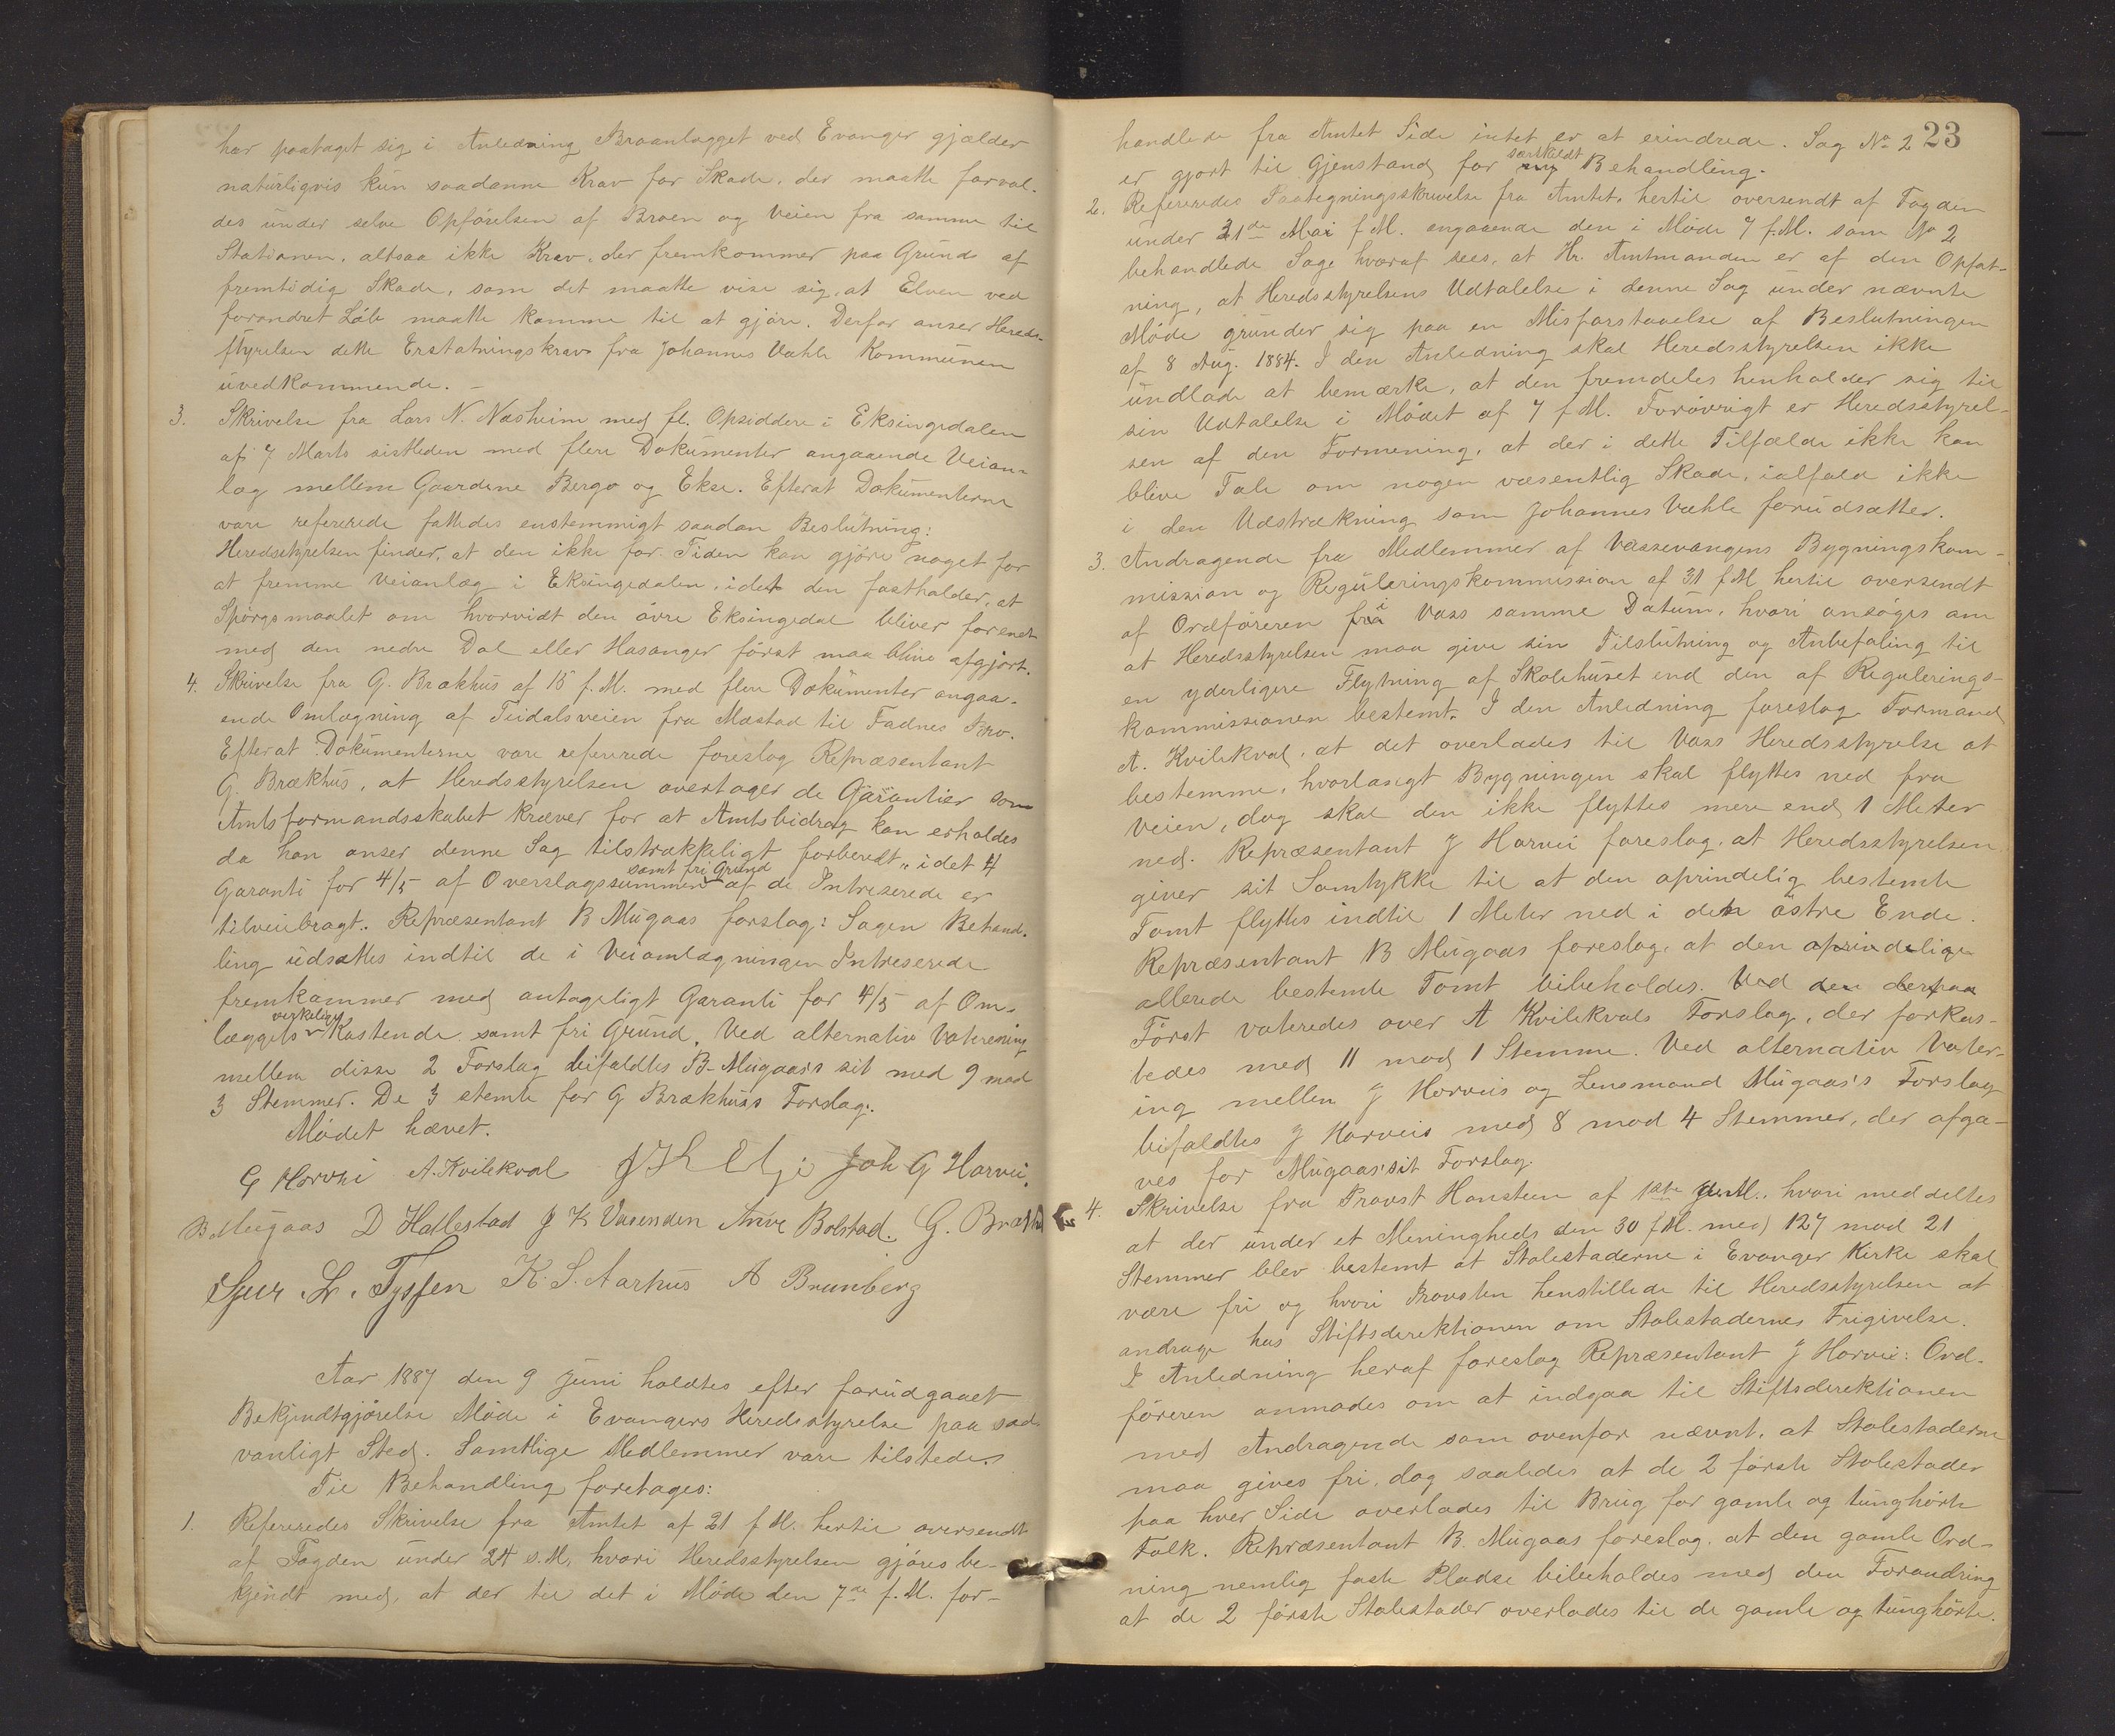 har paataget sig i Anledning Broanlægget ved Evanger gjælder
naturligvis kun saadanne Krav for Skade, der maatte forvol-
des under selve Opførelsen af Broen og Veien fra samme til
Stationen, altsaa ikke Krav, der fremkommer paa Grund af
fremtidig Skade, som det maatte vise sig, at Elven ved
forandret Løb maatte komme til at gjøre. Derfor anser Hereds-
styrelsen dette Erstatningskrav fra Johannes Væhle Kommunen
uvedkommende. –
3. Skrivelse fra Lars N. Næsheim med fl. Opsiddere i Eksingedalen
af 7 Marts sistleden med flere Dokumenter angaaende Veian-
læg mellem Gaardene Bergo og Ekse. Efterat Dokumenterne
vare refererede fattedes enstemmigt saadan Beslutning:
Heredsstyrelsen finder, at den ikke for Tiden kan gjøre noget for
at fremme Veianlæg i Eksingedalen, idet den fastholder, at
Spørgsmaalet om hvorvidt den øvre Eksingedal bliver forenet
med den nedre Dal eller Hosanger først maa blive afgjort.
4. Skrivelse fra G. Brækhus af 15 f. M. med flere Dokumenter angaa-
ende Omlægning af Teidalsveien fra Mæstad til Fadnes Bro.
Efterat Dokumenterne vare refererede foreslog Repræsentant
G. Brækhus, at Heredsstyrelsen overtager de Garantier som
Amtsformandsskabet kræver for at Amtsbidrag kan erholdes
da han anser denne Sag tilstrækkeligt forberedt, idet
samt fri Grund
Garanti for 4/5 af Overslagssummen af de Intreserede er
tilveiebragt. Repræsentant B Mugaas forslog: Sagen Behand-
ling udsættes indtil de i Veiomlægningen Intreserede
fremkommer med antageligt Garanti for 4/5 af Om-
virkelige
læggets Kostende samt fri Grund. Ved alternativ Votering
mellem disse 2 Forslag bifaldtes B. Mugaas's sit med 9 mod
3 Stemmer. De 3 stemte for G Brækhus's Forslag.
Mødet hævet.
G Horvei A. Kvilekval Joh G Horvei.
B. Mugaas D Hallestad J K Vasenden Anve Bolstad. G. Brækhus
Sjur L. Tyssen K. S. Aarhus A Brunberg
Aar 1887 den 9 Juni holdtes efter forudgaaet
Bekjendtgjørelse Møde i Evangers Heredsstyrelse paa sæd-
vanligt Sted. Samtlige Medlemmer vare tilstede.
Til Behandling foretages:
1. Refereredes Skrivelse fra Amtet af 21 f. M. hertil oversendt
af Fogden under 24 s. M. hvori Heredsstyrelsen gjøres be-
kjendt med, at der til det i Møde den 7de f. M. for-
23
handlede fra Amtet Side intet er at erindrede. Sag No 2
særskildt
er gjort til Gjenstand for ny Behandling.
2. Refereredes Paategningsskrivelse fra Amtet, hertil oversendt af Fogden
under 31de Mai f M. angaaende den i Møde 7 f. M. som No 2
behandlede Sag, hvoraf sees, at Hr. Amtmanden er af den Opfat-
ning, at Heredsstyrelsens Udtalelse i denne Sag under nævnte
Møde grunder sig paa en Misforstaaelse af Beslutningen
af 8 Aug. 1884. I den Anledning skal Heredsstyrelsen ikke
undlade at bemærke, at den fremdeles henholder sig til
sin Udtalelse i Mødet af 7 f M. Forøvrigt er Heredsstyrel-
sen af den Formening, at der i dette Tilfælde ikke kan
blive Tale om nogen væsentlig Skade, ialfald ikke
i den Udstrækning som Johannes Væhle forudsætter.
3. Andragende fra Medlemmer af Vossevangens Bygningskom-
mission og Reguleringskommission af 31 f M hertil oversendt
i
af Ordføreren fra Voss samme Datum, hvori ansøges om
at Heredsstyrelsen maa give sin Tilslutning og Anbefaling til
en yderligere Flytning af Skolehuset end den af Regulerings-
kommissionen bestemt. I den Anledning foreslog Formand
A. Kvilekval, at det overlades til Voss Heredsstyrelse at
bestemme, hvorlangt Bygningen skal flyttes ned fra
Veien, dog skal den ikke flyttes mere end 1 Meter
ned. Repræsentant J Horvei foreslog, at Heredsstyrelsen
giver sit Samtykke til at den oprindelig bestemte
Tomt flyttes indtil 1 Meter ned i den østre Ende.
Repræsentant B Mugaas foreslog, at den oprindelige
allerede bestemte Tomt bibeholdes. Ved den derpaa
Først voteredes over A Kvilekvals Forslag, der forkas-
tedes med 11 mod 1 Stemme. Ved alternativ Voter-
ing mellem J Horveis og Lensmand Mugaas's Forslag
bifaldtes J Horveis med 8 mod 4 Stemmer, der afga-
ves for Mugaas's sit Forslag.
4. Skrivelse fra Provst Hansteen af 1ste ds. M., hvori meddeltes
at der under et Meningheds den 30 f M. med 127 mod 21
Stemmer blev bestemt at Stolestaderne i Evanger Kirke skal
være fri og hvori Provsten henstillede til Heredsstyrelsen at
andrage hos Stiftsdirektionen om Stolestadernes Frigivelse.
I Anledning heraf foreslog Repræsentant J Horvei: Ord-
føreren anmodes om at indgaa til Stiftsdirektionen
med Andragende som ovenfor nævnt, at Stolestaderne
maa gives fri, dog saaledes at de 2 første Stolestader
paa hver Side overlades til Brug for gamle og tunghørte
Folk. Repræsentant B. Mugaas foreslog, at den gamle Ord-
ning nemlig faste Pladse bibeholdes med den Forandring
at de 2 første Stolestader overlades til de gamle og tunghørte.